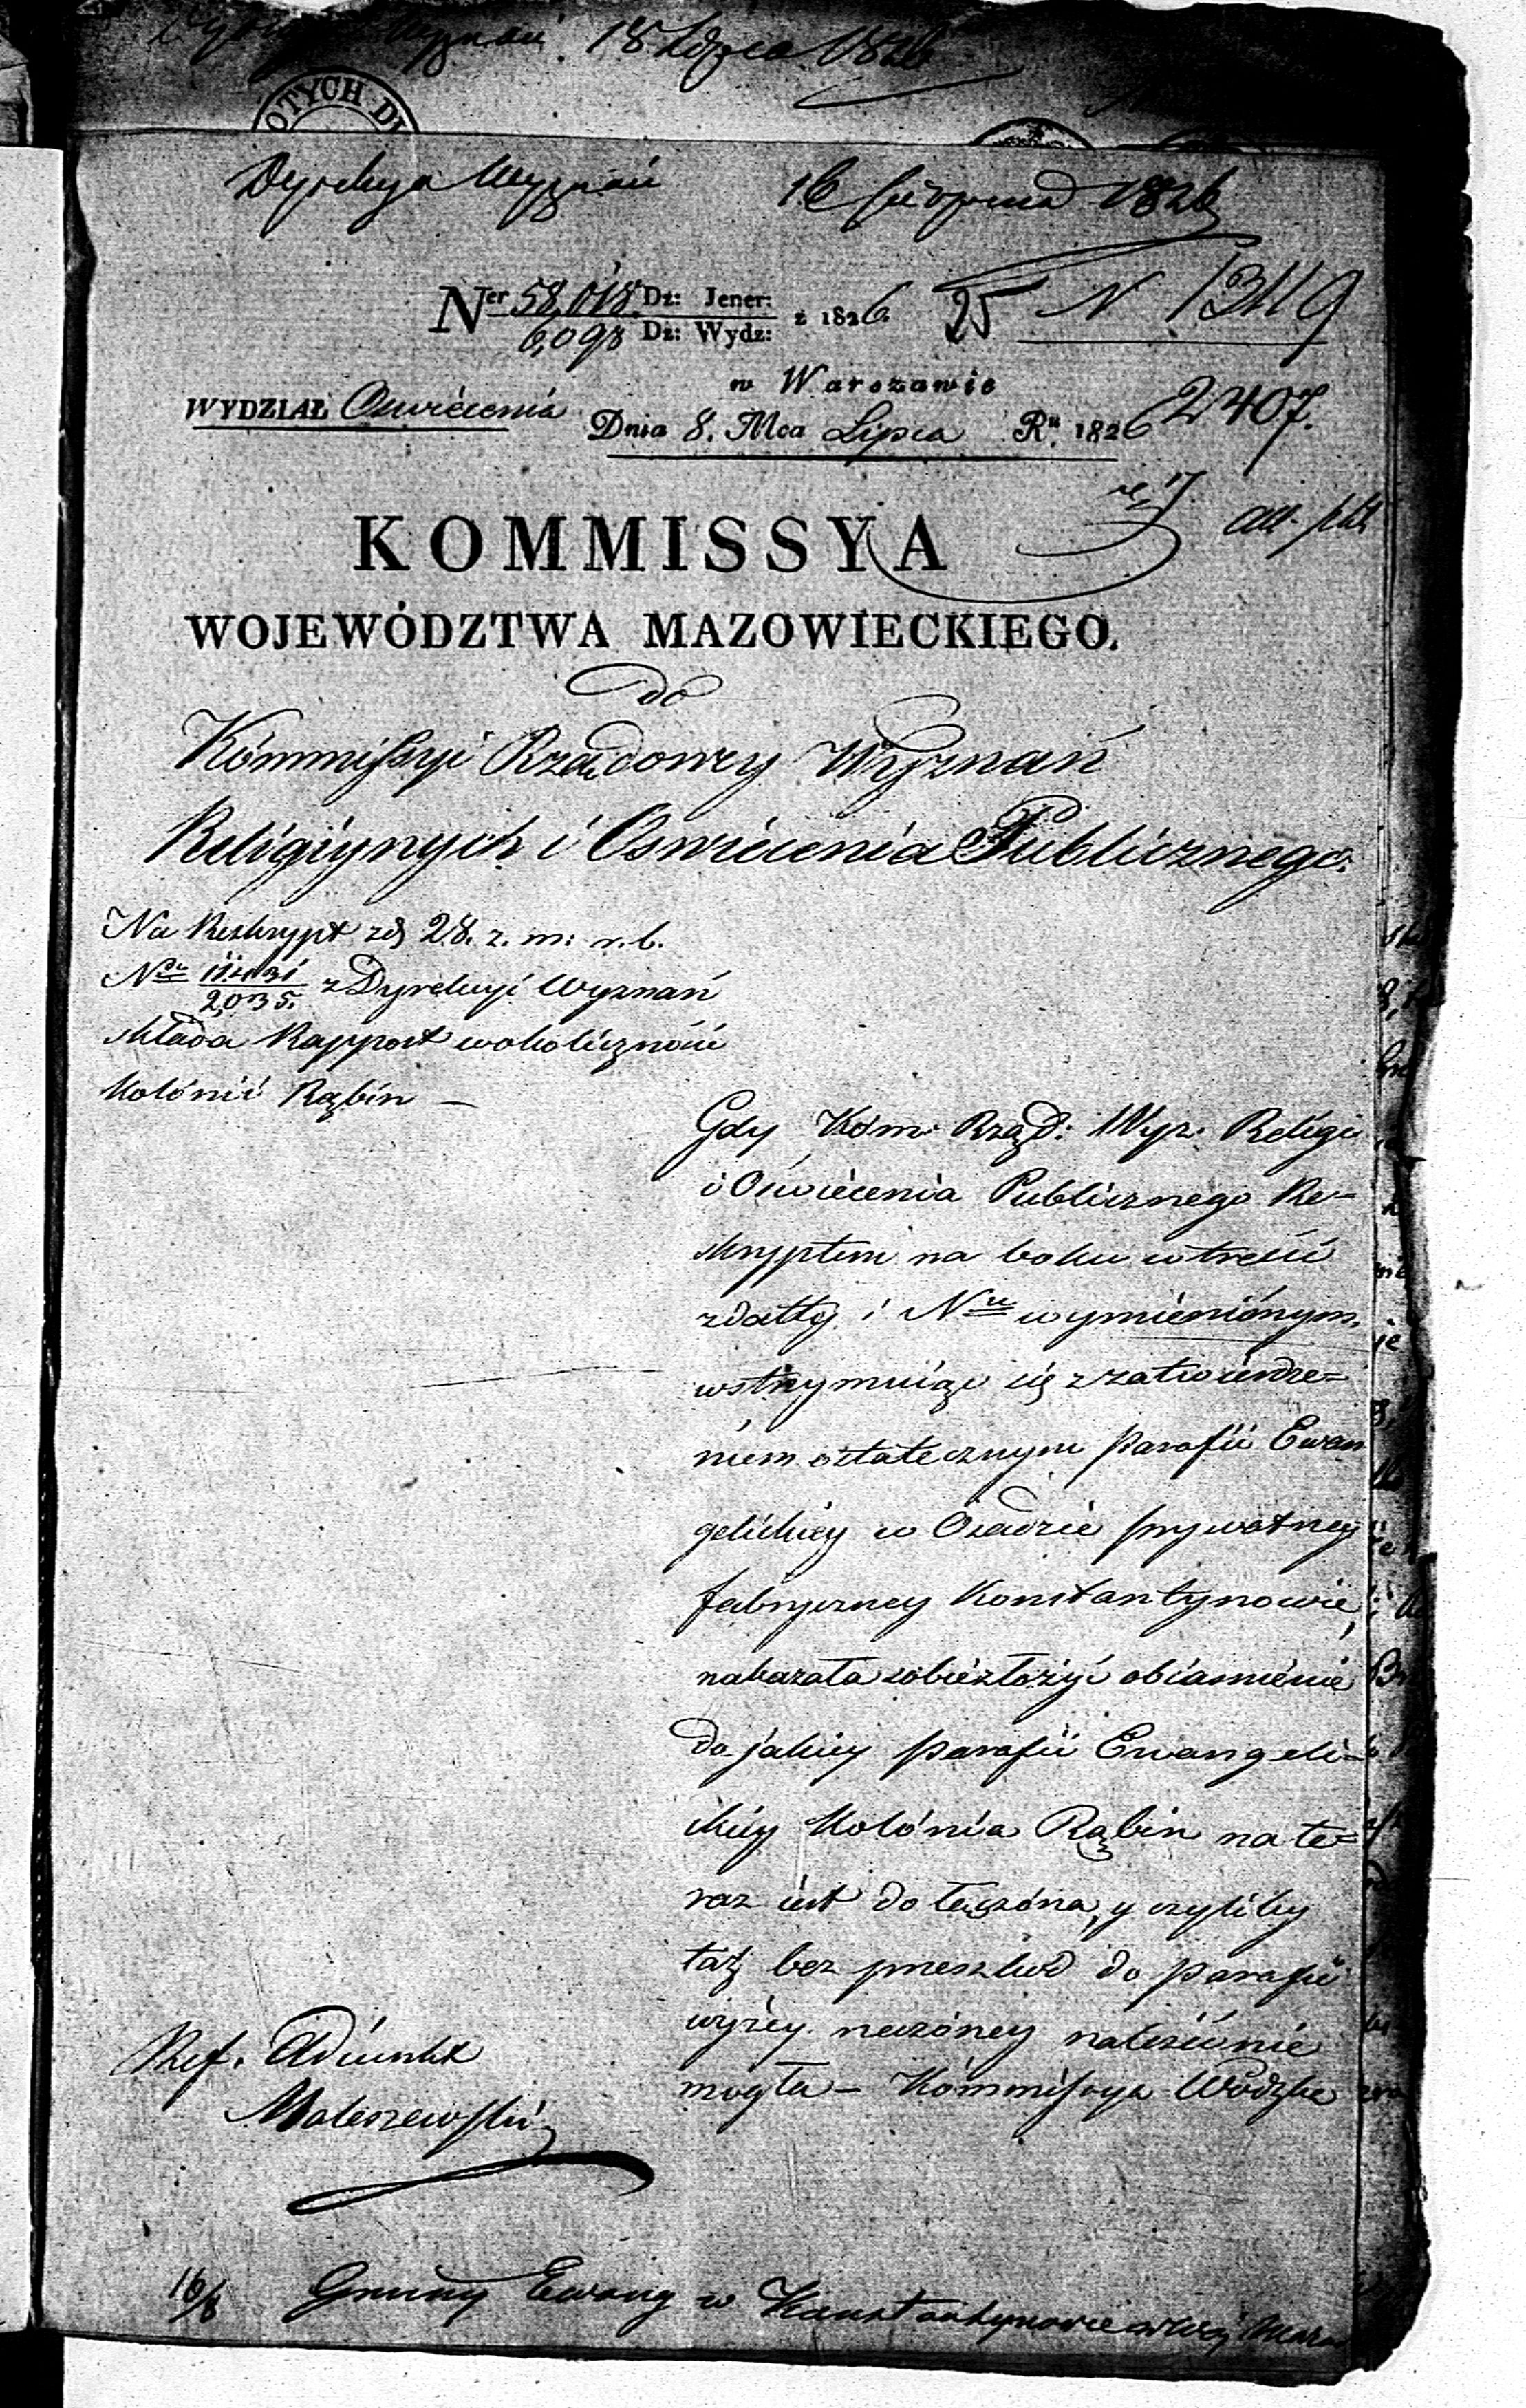 Wyznań. 18 Lipca 1826
OTYCH
Dyrekcya Wyznań 16 Sierpnia 1826
Ner 58,018. Dz: Jener: z 1826. 25 N 13119
6,098 Dz: Wydz:
w Warszawie
WYDZIAŁ Oswiecenia
2407.
Dnia 8. Mca Lipca Ru. 1826
KOMMISSYA
WOJEWÓDZTWA MAZOWIECKIEGO.
do
Kommissyi Rządowey Wyznań
Religiynych i Oswiecenia Publicznego.
Na Reskrypt zd 28. z. m: r. b.
Nru
2,035. z Dyrekcyi Wyznań
składa Rapport wokoliczności
Kolónii Rąbin —
Gdy Kóm: Rząd: Wyz: Religi
i Oswiecenia Publicznego Re=
skryptem na boku w treści
z datty i Nru wymieniónym,
wstrzymuiąc się z zatwierdze=
niem ostatecznym Parafii Ewan
gelickiey w Osadzie prywatney
fabryczney Konstantynowie,
nakazała sobie złożyć obiasnienie
do jakiey Parafii Ewangeli=
ckiey Kolónia Rąbin na te=
raz iest dołączóna, y czyliby
taż bez przeszkód do Parafii
wyżey rzeczóney należeć nie
mogła — Kómmissya Wodzka
Ref. Adiunkt
Maleszewski
16/8 Gminy Ewang w Konstantynowie